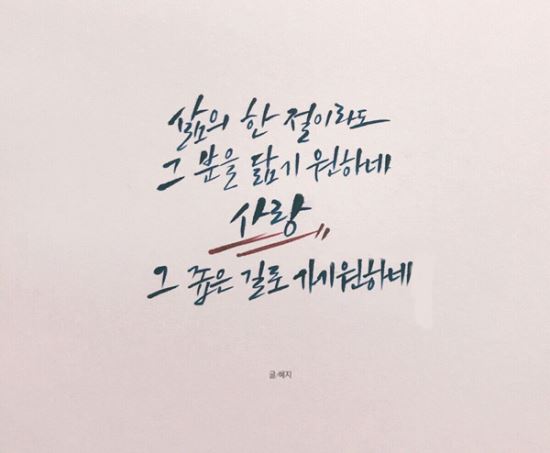 삶의 한 절이라도
그 분을 닮기 원하네
사랑
그 좁은 길로 가기원하네
글.혜지